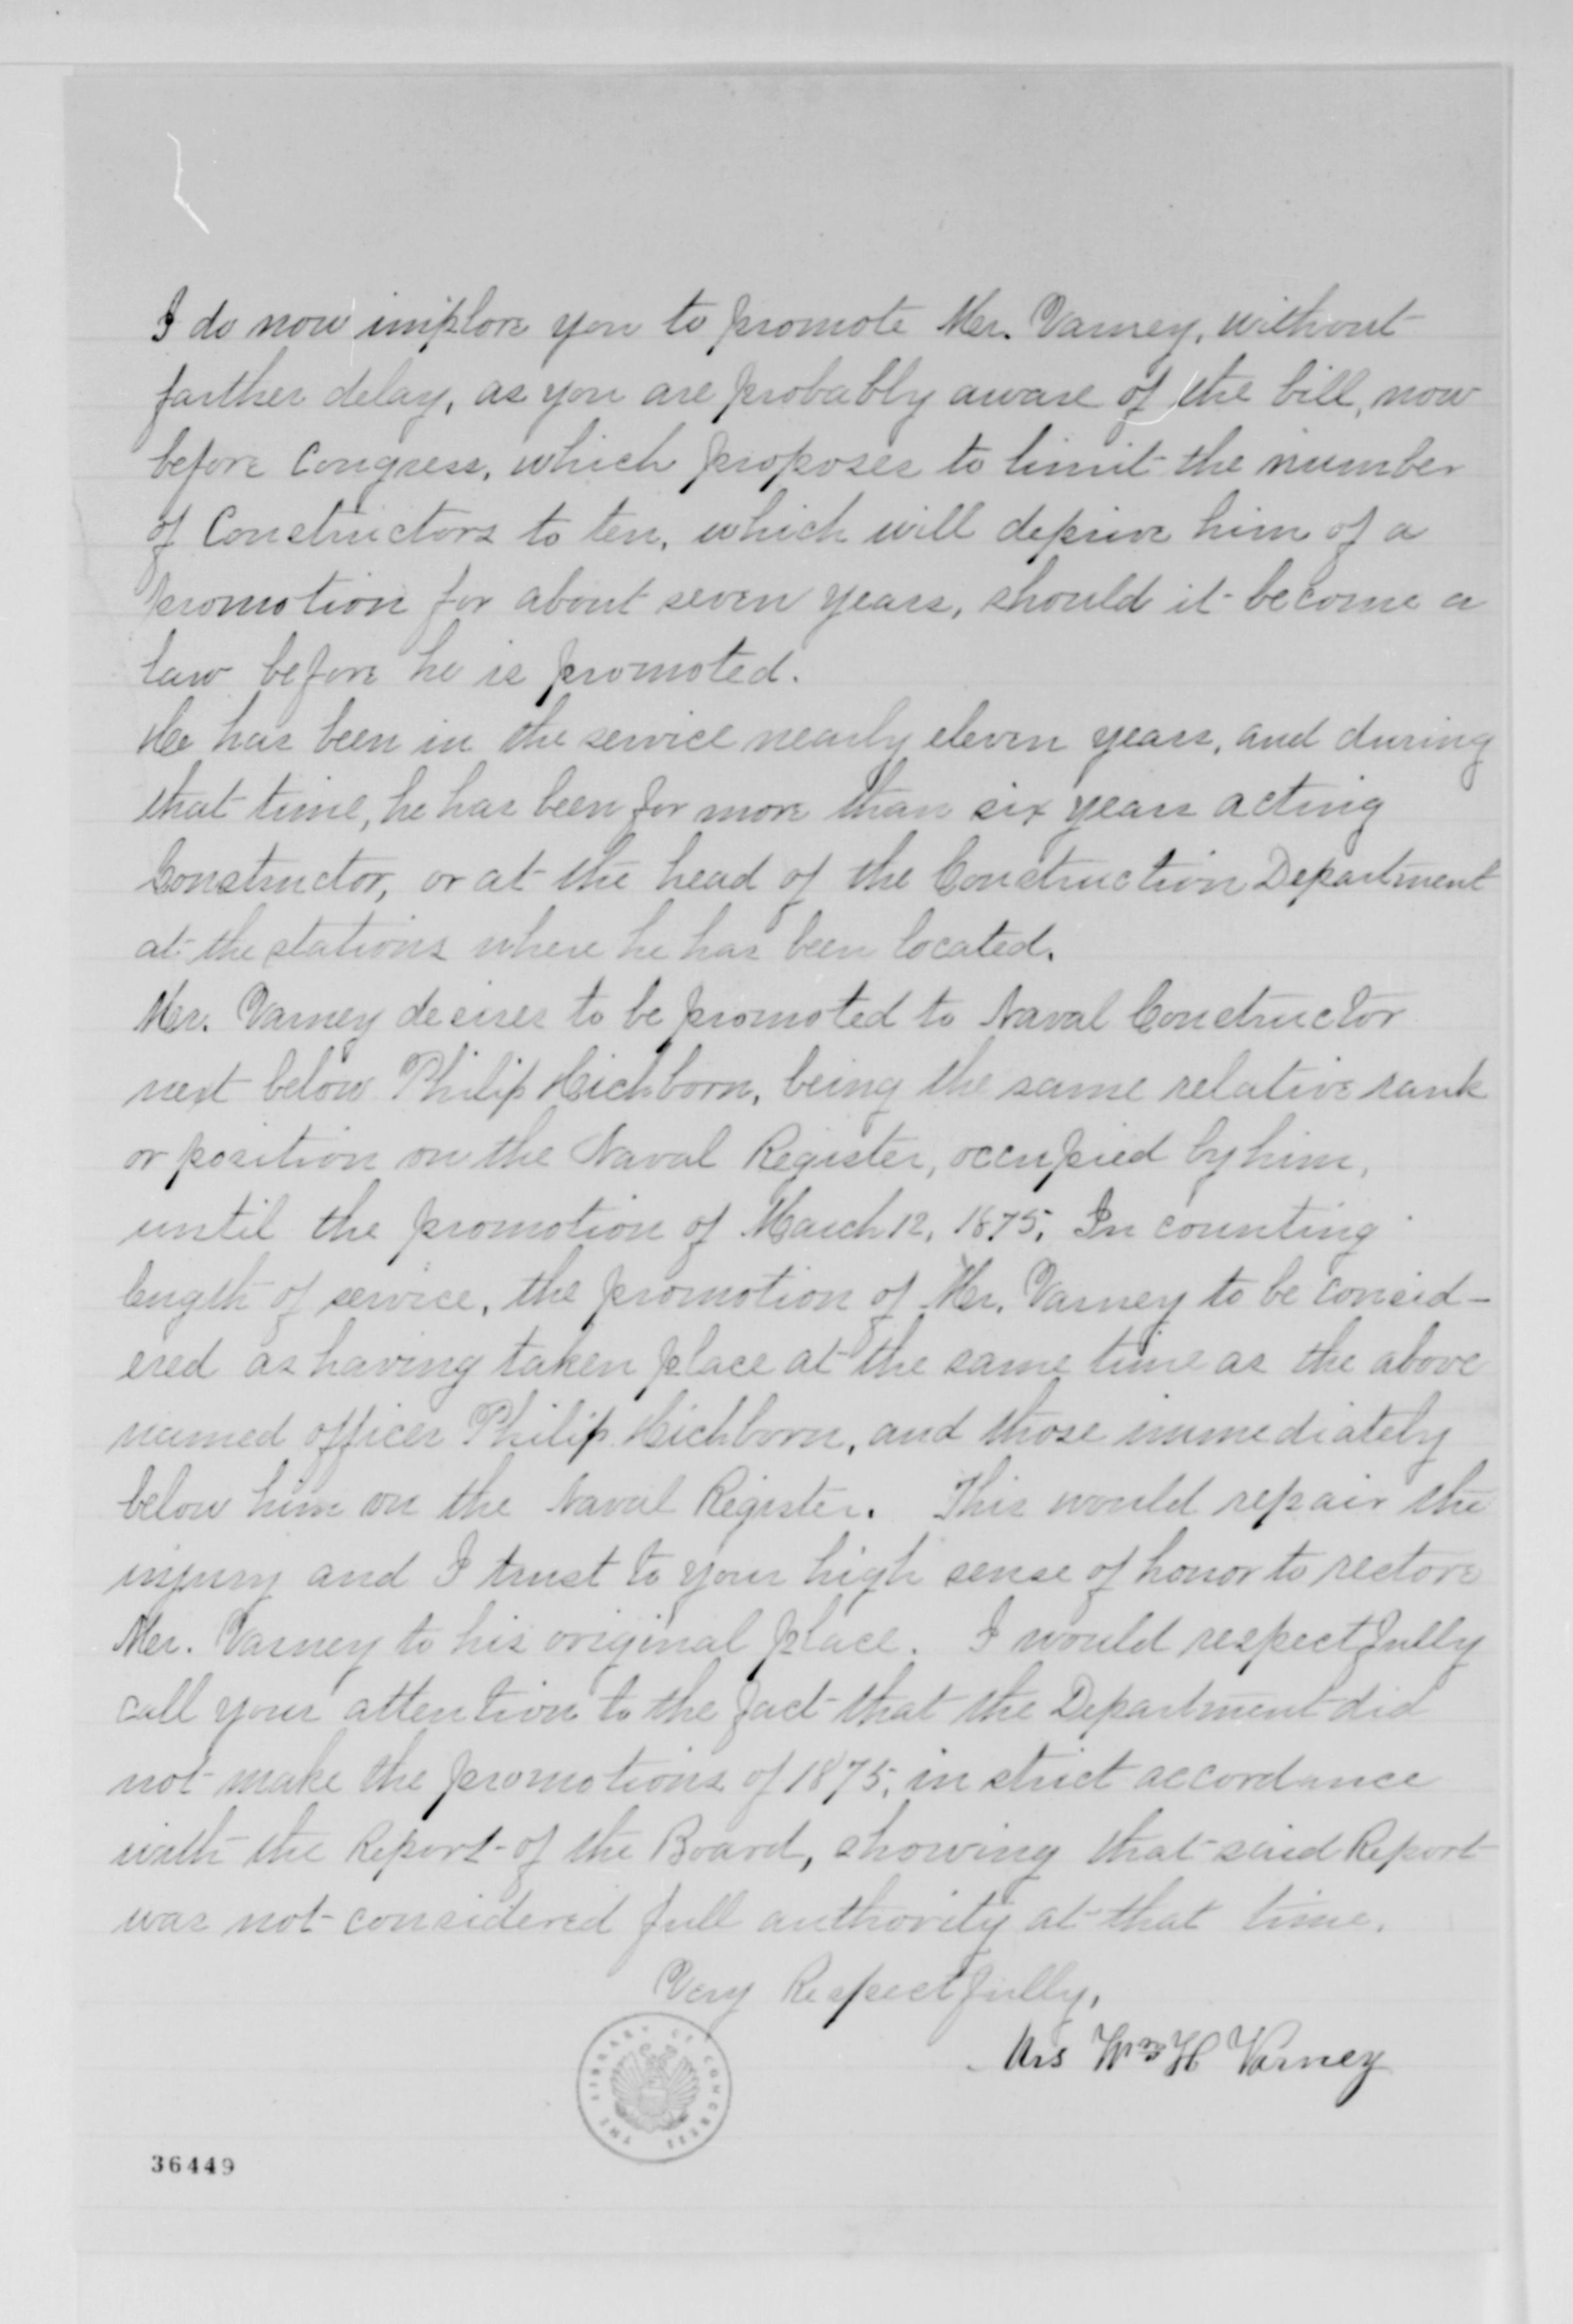 I do now implore you to promote Mr. Varney, without
farther delay, as you are probably aware of the bill, now
before Congress, which proposes to limit the number
of Constructors to ten, which will deprive him of a
promotion for about seven years, should it become a
law before he is promoted.
He has been in the service nearly eleven years, and during
that time, he has been for more than six years acting
Constructor, or at the head of the Construction Department
at the stations where he has been located.
Mr. Varney desires to be promoted to Naval Constructor
next below Philip Hichborn, being the same relative rank
or position on the Naval Register, occupied by him,
until the promotion of March 12, 1875. In counting
length of service, the promotion of Mr. Varney to be consid-
ered as having taken place at the same time as the above
named officer Philip Hichborn, and those immediately
below him on the Naval Register. This would repair the
injury and I trust to your high sense of honor to restore
Mr. Varney to his original place. I would respectfully
call your attention to the fact that the Department did
not make the promotions of 1875, in strict accordance
with the Report of the Board, showing that said Report
was not considered full authority at that time.
Very Respectfully,
Mrs Wm H Varney
THE LIBRARY OF CONGRESS
36449